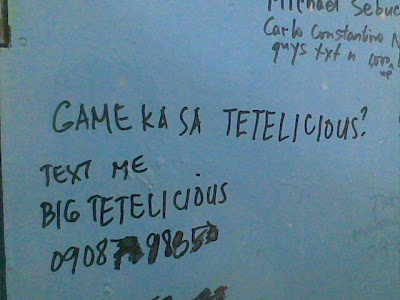 Michael Sebuc
Carlo Constantino N
guys txt n
up
GAME KA SA TETELICIOUS?
TEXT ME
BIG TETELICIOUS